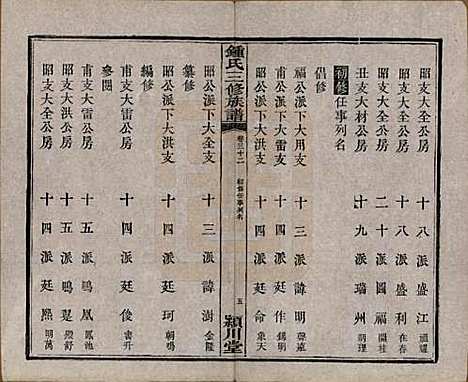 昭支大全公房 十八派盛江
昭支大雷公房 十八派盛利
丑支大材公房 二十派國福 開桂
初修任事列名 十九派瑞州
倡修
福公派下大用支 十三派諱明
甫公派下大雷支 十四派廷作 錫明
昭公派下大全支 十四派廷命 象天
鍾氏三修族譜 卷三十二 初修任事列名 五 潁川堂
昭公派下大全支 十三派諱澍 金隆
纂修
昭公派下大洪支 十四派廷珂 朝鳴
編修
甫支大雷公房 十四派廷俊 書升
甫支大雷公房 十五派鳴鳳 鳳池
參閱
昭支大洪公房 十五派鳴鸞 殿舒
昭支大全公房 十四派廷熙 明萬